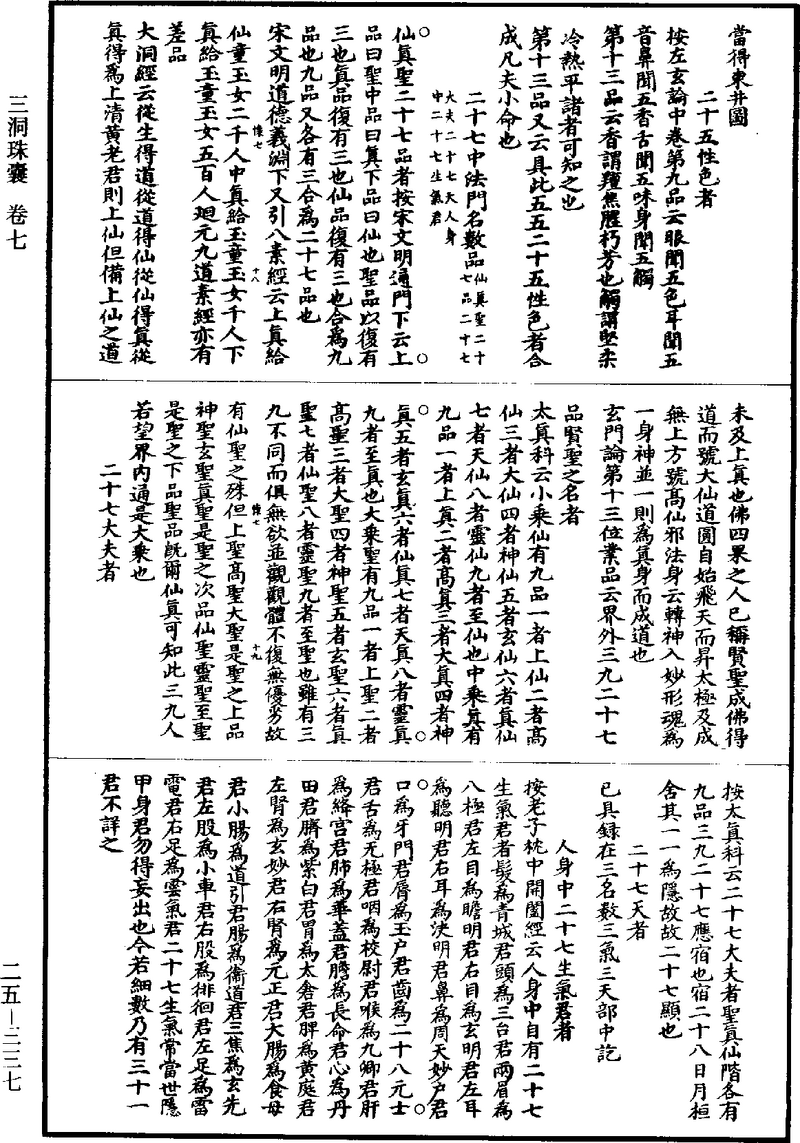 三洞珠囊 卷七
二五－三三七
當得東井圖
二十五性色者
按左玄論中卷第九品云眼聞五色耳聞五
音鼻聞五香舌聞五味身聞五觸
第十三品云香謂羶焦腥朽芳也觸謂堅柔
冷熱平諸者可知之也
第十三品又云具此五五二十五性色者合
成凡夫小命也
二十七中法門名數品仙真聖二十七品二十七
大夫二十七天人身
中二十七生氣君
仙真聖二十七品者按宋文明通門下云上
品曰聖中品曰真下品曰仙也聖品以復有
三也真品復有三也仙品復有三也合為九
品也九品又各有三合為二十七品也
宋文明道德義淵下又引八素經云上真給
懷七 十八
仙童玉女二千人中真給玉童玉女千人下
真給玉童玉女五百人迴元九道素經亦有
差品
大洞經云從生得道從道得仙從仙得真從
真得為上清黃老君則上仙但備上仙之道
未及上真也佛四果之人已稱賢聖成佛得
道而號大仙道圓自始飛天而昇太極及成
無上方號高仙邪法身云轉神入妙形魂為
一身神並一則為真身而成道也
玄門論第十三位業品云界外三九二十七
品賢聖之名者
太真科云小乘仙有九品一者上仙二者高
仙三者大仙四者神仙五者玄仙六者真仙
七者天仙八者靈仙九者至仙也中乘真有
九品一者上真二者高真三者大真四者神
真五者玄真六者仙真七者天真八者靈真
九者至真也大乘聖有九品一者上聖二者
高聖三者大聖四者神聖五者玄聖六者真
聖七者仙聖八者靈聖九者至聖也雖有三
九不同而俱無欲並觀觀體不復無優劣故
懷七 十九
有仙聖之殊但上聖高聖大聖是聖之上品
神聖玄聖真聖是聖之次品仙聖靈聖至聖
是聖之下品聖品既爾仙真可知此三九人
若望界內通是大乘也
二十七大夫者
按太真科云二十七大夫者聖真仙階各有
九品三九二十七應宿也宿二十八日月桓
舍其一一為隱故故二十七顯也
二十七天者
已具録在三名數三氣三天部中訖
人身中二十七生氣君者
按老子枕中開闔經云人身中自有二十七
生氣君者髮為青城君頭為三台君兩眉為
八極君左目為瞻明君右目為玄明君左耳
為聽明君右耳為決明君鼻為周天妙户君
口為牙門君脣為玉户君齒為二十八元士
君舌為无極君咽為校尉君喉為九卿君肝
為絳宮君肺為華蓋君膽為長命君心為丹
田君臍為紫白君胃為太倉君脾為黃庭君
左腎為玄妙君右腎為元正君大腸為食母
君小腸為道引君腸為衛道君三焦為玄先
君左股為小車君右股為徘徊君左足為雷
電君右足為雲氣君二十七生氣常當世隱
甲身君勿得妄出也今若細數乃有三十一
君不詳之